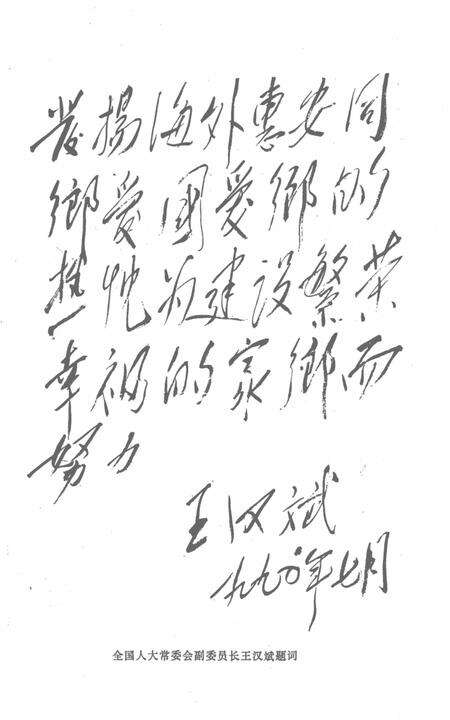 发揚海外惠安同
鄉爱國爱鄉的
热忱为建设繁荣
幸福的家鄉而
努力
王汉斌
一九九〇年七月
全国人大常委会副委员长王汉斌题词